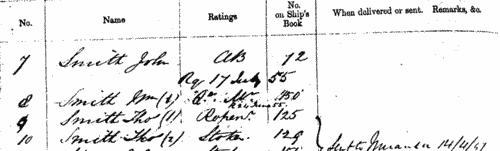 No. Name Ratings No. on Ship's Book When delivered or sent. Remarks, &c.
7 Smith John AB 72
Rg 17 July 55
8 Smith Wm (2) 150
9 Smith Tho (1) Ropem. 125
10 Smith Tho (2) Stoker 129 Sent to Miranda 14/4/57